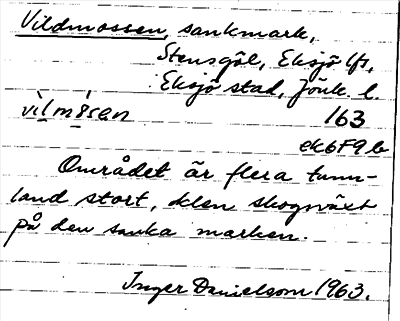 Vildmossen, sankmark,
Stensgöl, Eksjö lfs,
Eksjö stad, Jönk. l.
163
ek6F9b
Området är flera tunn-
land stort, klen skogväxt
på den sanka marken.
Inger Danielsom 1963.